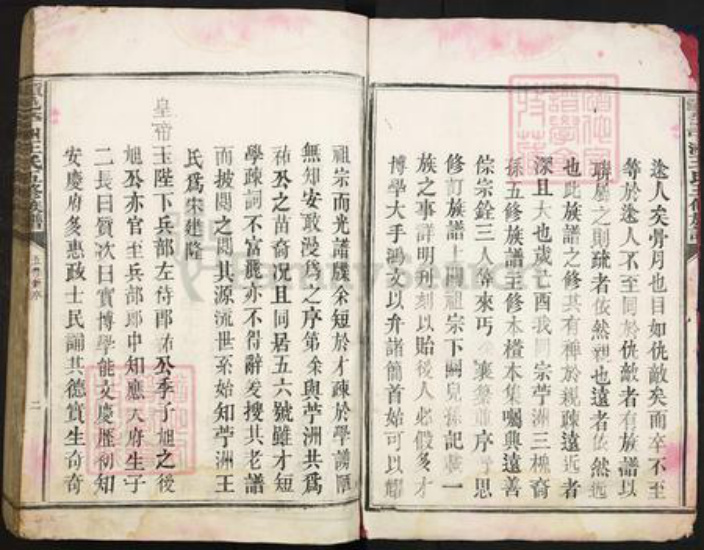 途人矣骨月也目如仇敵矣而卒不至
等於途人不至同於仇敵者有族譜以
聯屬之則疏者依然親也遠者依然近
也此族譜之修其有裨於親疎遠近者
深且大也歲己酉我同宗苧洲三槐裔
孫五修族譜主修木橙木集囑興遠善
倧宗銓三人等來丐 襄纂並序 思
修訂族譜上關祖宗下關兒孫記載一
族之事詳明刋刻以貽後人必假多才
博學大手鴻文以弁諸簡首始可以耀
祖宗而光譜牒余短於才疎於學謭陋
無知安敢漫爲之序第余與苧洲共爲
祐公之苗裔况且同居五六號雖才短
學疎詞不富麗亦不得辭爰搜其老譜
而披閱之閱其源流世系始知苧洲王
氏爲宋建隆
皇帝玉陛下兵部左侍郎祐公季子旭之後
旭公亦官至兵部郎中知應天府生子
二長曰質次曰實博學能文慶歷初知
安慶府多惠政士民誦其德質生奇奇
二
FamilySearch